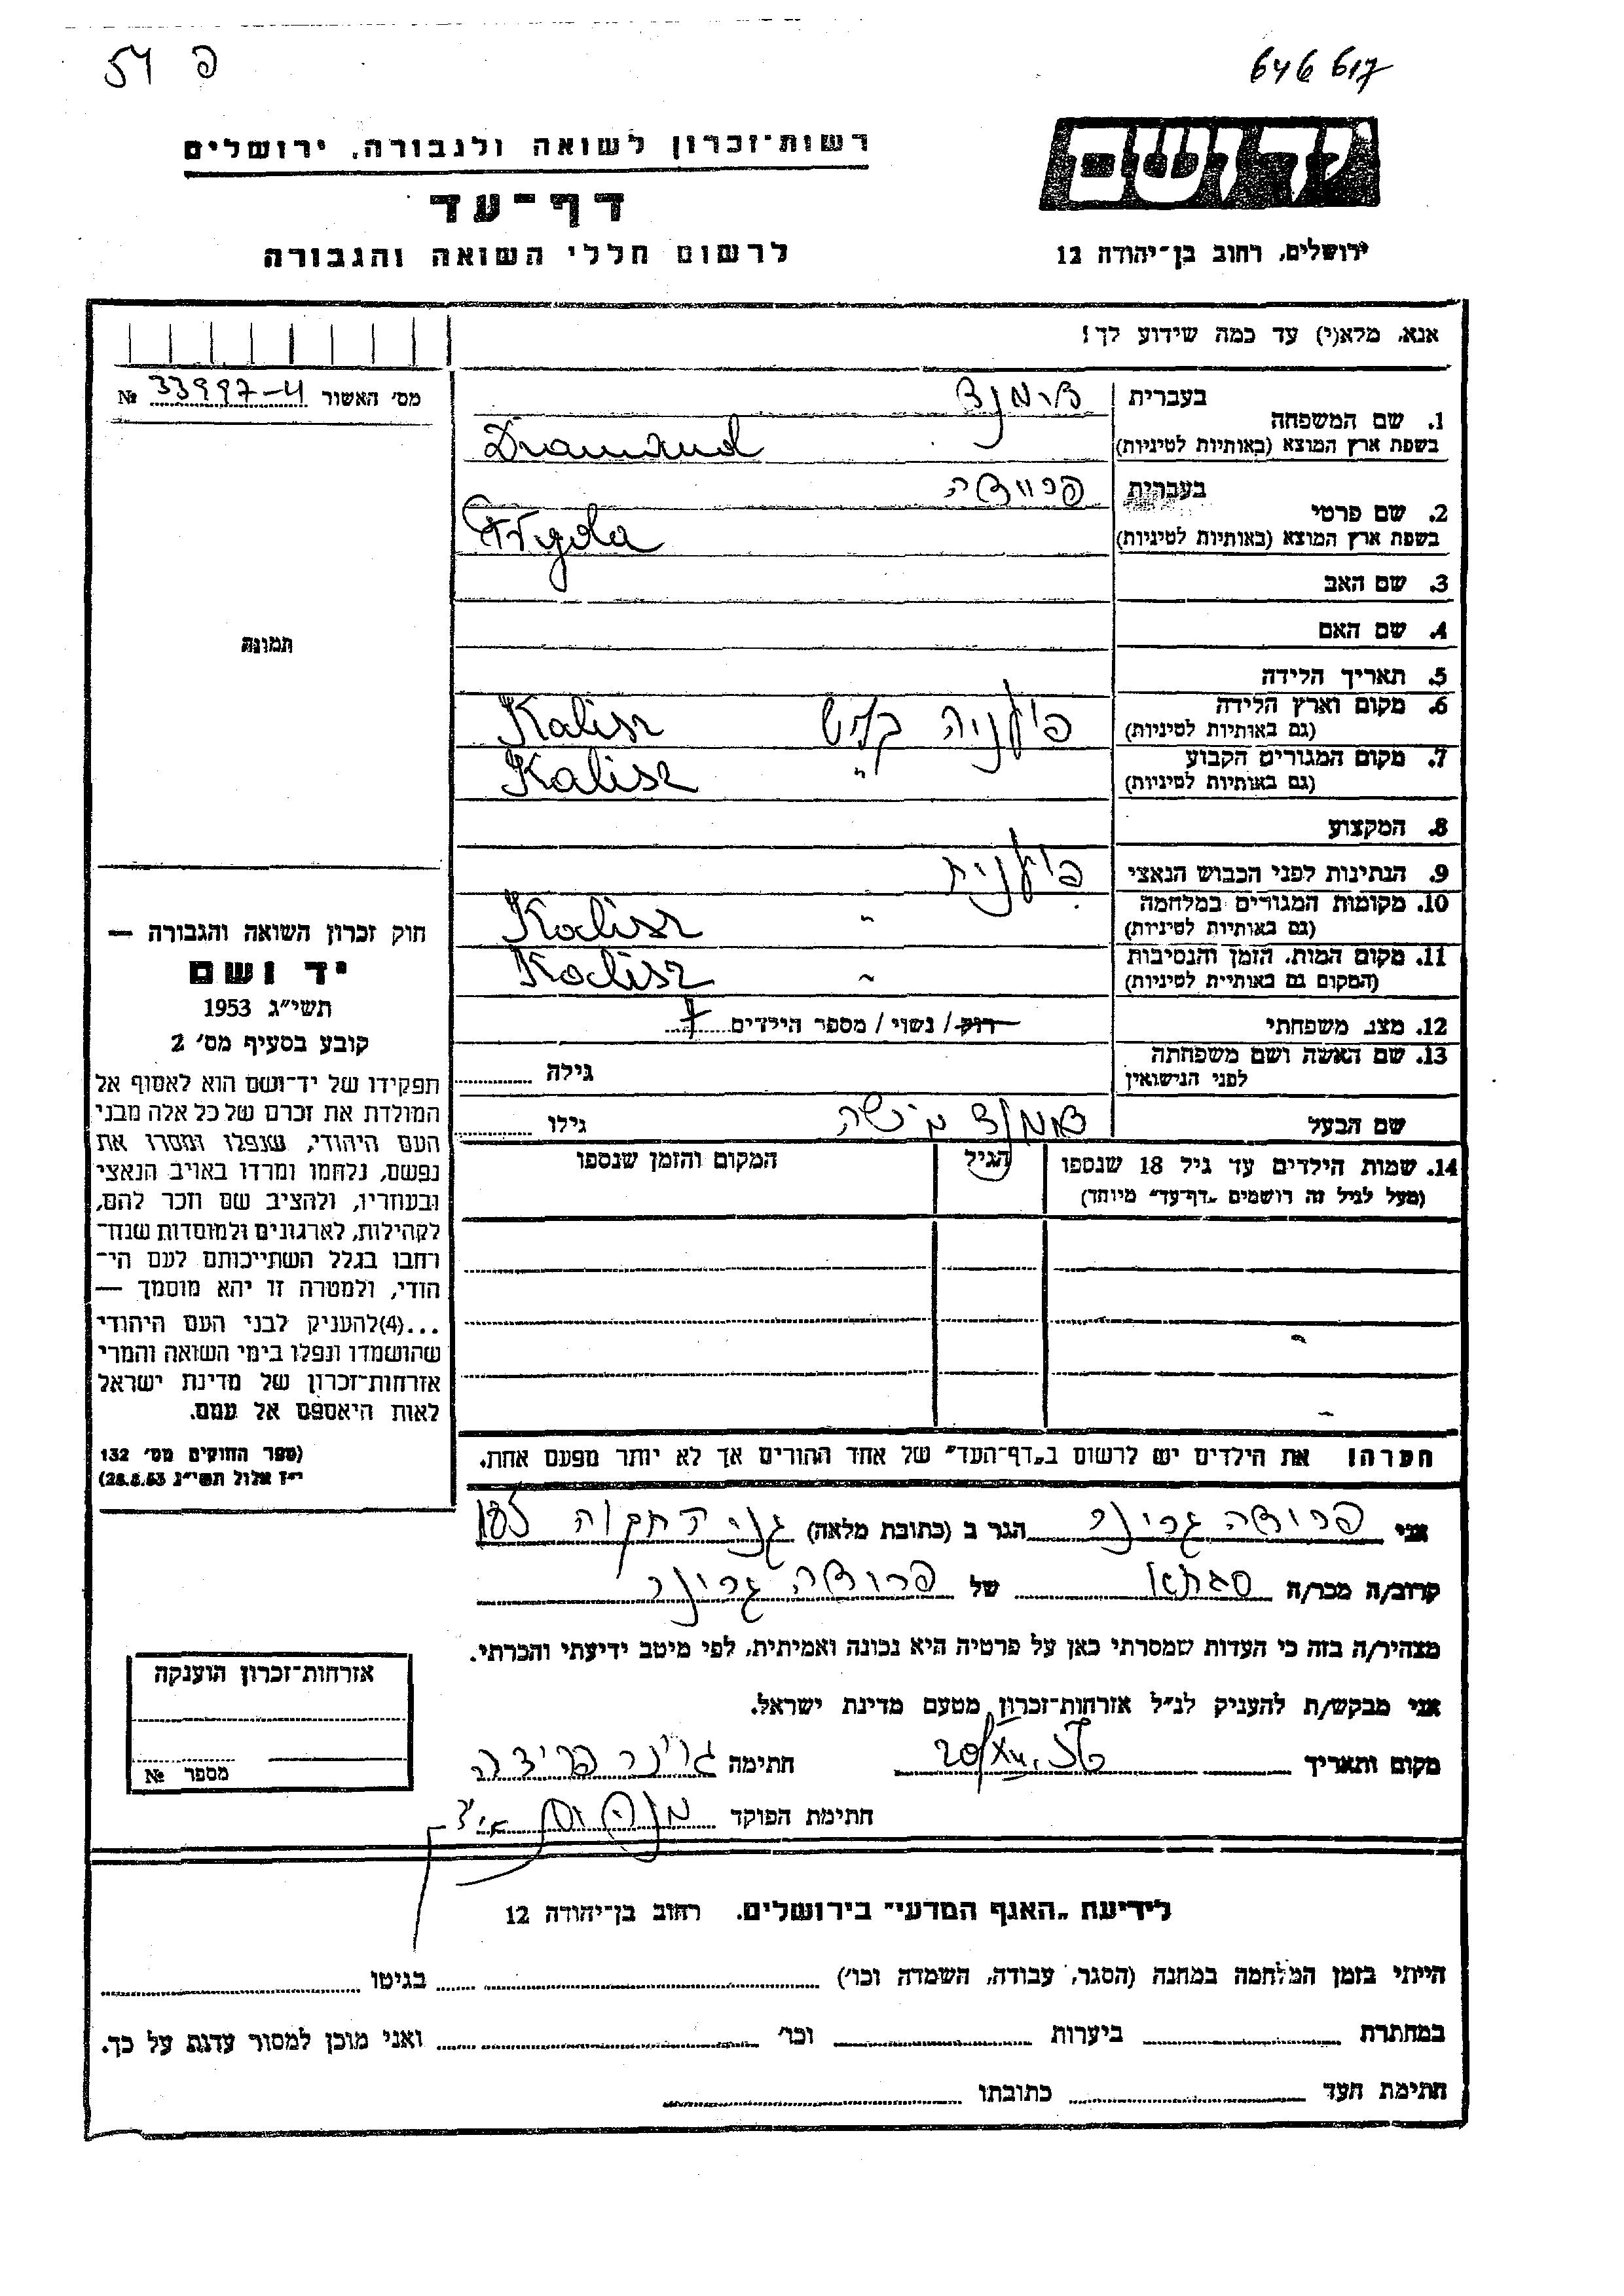 54 פ
646617
רשות־זכרון לשואה ולגבורה, ירושלים
דף־עד
לרשום חללי השואה והגבורה
יד ושם
ירושלים, רחוב בן־יהודה 12
אנא, מלא(י) עד כמה שידוע לך!
מס׳ האשור 33997-4 №
תמונה
1. שם המשפחה
בעברית
בשפת ארץ המוצא (באותיות לטיניות) Diamand
2. שם פרטי
בעברית
בשפת ארץ המוצא (באותיות לטיניות)
3. שם האב
4. שם האם
5. תאריך הלידה
6. מקום וארץ הלידה פולניה קליש Kalisz
(גם באותיות לטיניות)
7. מקום המגורים הקבוע " Kalisz
(גם באותיות לטיניות)
8. המקצוע
9. הנתינות לפני הכבוש הנאצי פולנית
10. מקומות המגורים במלחמה " Kalisz
(גם באותיות לטיניות)
11. מקום המות, הזמן והנסיבות " Kalisz
(המקום גם באותיות לטיניות)
12. מצב משפחתי רוק / נשוי / מספר הילדים
13. שם האשה ושם משפחתה
לפני הנישואין גילה
שם הבעל גילו
14. שמות הילדים עד גיל 18 שנספו הגיל המקום והזמן שנספו
(מעל לגיל זה רושמים "דף־עד" מיוחד)
הערה! את הילדים יש לרשום ב"דף־העד" של אחד ההורים אך לא יותר מפעם אחת.
חוק זכרון השואה והגבורה —
יד ושם
תשי״ג 1953
קובע בסעיף מס׳ 2
תפקידו של יד־ושם הוא לאסוף אל
המולדת את זכרם של כל אלה מבני
העם היהודי, שנפלו ומסרו את
נפשם, נלחמו ומרדו באויב הנאצי
ובעוזריו, ולהציב שם וזכר להם,
לקהילות, לארגונים ולמוסדות שנח־
רחבו בגלל השתייכותם לעם הי־
הודי, ולמטרה זו יהא מוסמך —
...(4)להעניק לבני העם היהודי
שהושמדו ונפלו בימי השואה והמרי
אזרחות־זכרון של מדינת ישראל
לאות היאספם אל עמם.
(ספר החוקים מס׳ 132
י״ז אלול תשי״ג 28.8.53)
אני הגר ב (כתובת מלאה)
קרוב/ה מכר/ה של
מצהיר/ה בזה כי העדות שמסרתי כאן על פרטיה היא נכונה ואמיתית, לפי מיטב ידיעתי והכרתי.
אני מבקש/ת להעניק לנ״ל אזרחות־זכרון מטעם מדינת ישראל.
מקום ותאריך חתימה
חתימת הפוקד
אזרחות־זכרון הוענקה
מספר №
לידיעת "האגף המדעי" בירושלים, רחוב בן־יהודה 12
הייתי בזמן המלחמה במחנה (הסגר, עבודה, השמדה וכו׳) בגיטו
במחתרת ביערות וכו׳ ואני מוכן למסור עדות על כך.
חתימת העד כתובתו